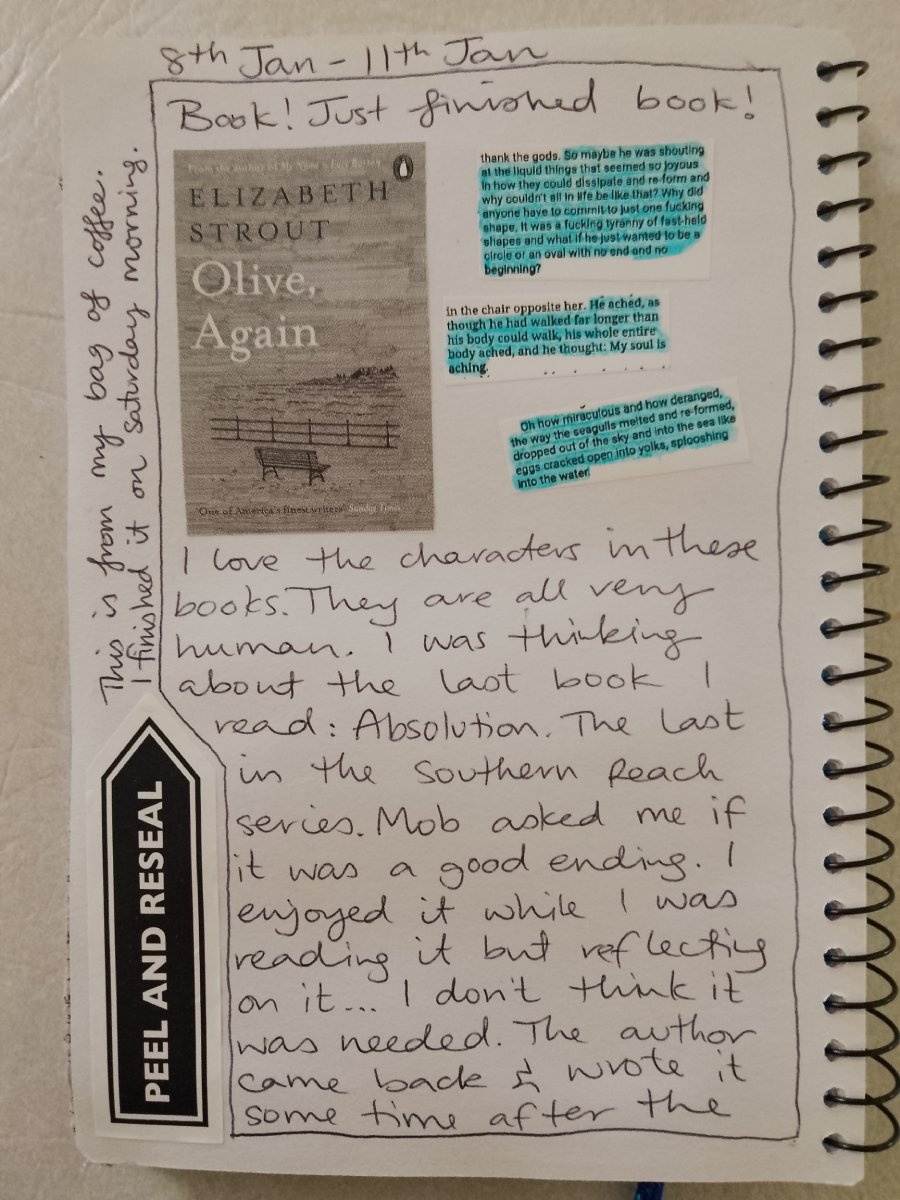 8th Jan - 11th Jan
Book! Just finished book!
From the author of My Name is Lucy Barton
ELIZABETH
STROUT
Olive,
Again
'One of America's finest writers' Sunday Times
thank the gods. So maybe he was shouting
at the liquid things that seemed so joyous
in how they could dissipate and re-form and
why couldn't all in life be like that? Why did
anyone have to commit to just one fucking
shape. It was a fucking tyranny of fast-held
shapes and what if he just wanted to be a
circle or an oval with no end and no
beginning?
in the chair opposite her. He ached, as
though he had walked far longer than
his body could walk, his whole entire
body ached, and he thought: My soul is
aching.
Oh how miraculous and how deranged,
the way the seagulls melted and re-formed,
dropped out of the sky and into the sea like
eggs cracked open into yolks, splooshing
into the water.
I love the characters in these
books. They are all very
human. I was thinking
about the last book I
read: Absolution. The last
in the Southern Reach
series. Mob asked me if
it was a good ending. I
enjoyed it while I was
reading it but reflecting
on it... I don't think it
was needed. The author
came back & wrote it
some time after the
This is from my bag of coffee.
I finished it on Saturday morning.
PEEL AND RESEAL